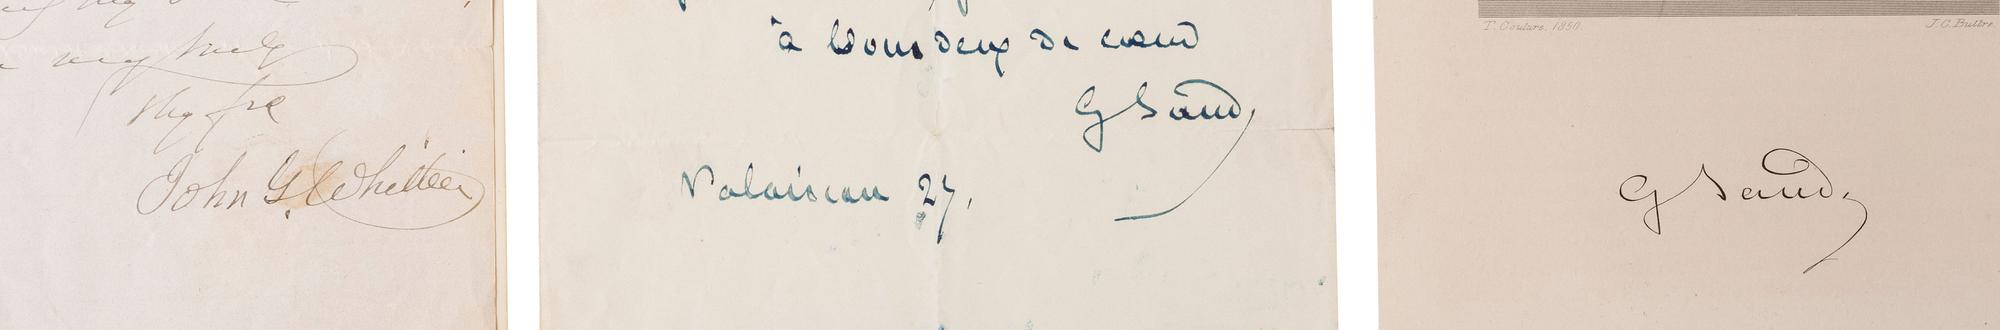 my
Thy frd
John G. Whittier
à vous deux de cœur
G Sand
Palaiseau 27,
T. Couture. 1850.
J.C. Buttre.
G Sand.